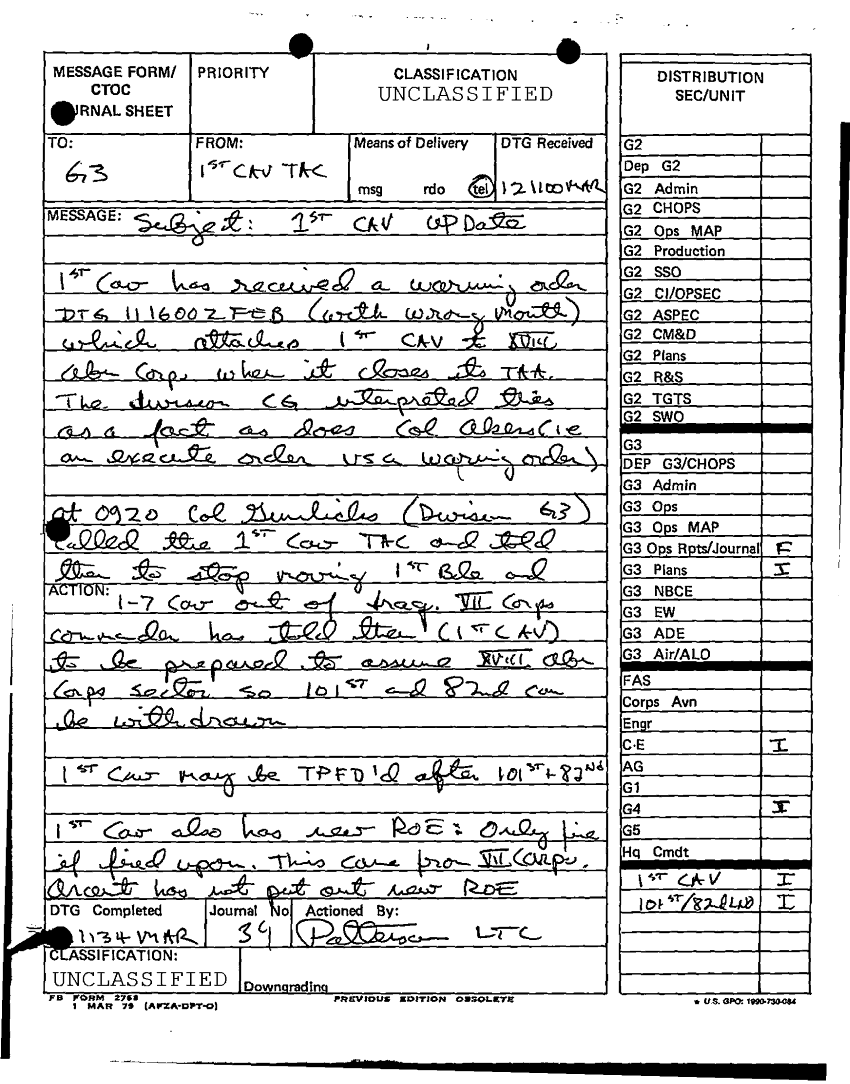 MESSAGE FORM/
CTOC
RNAL SHEET
PRIORITY
CLASSIFICATION
UNCLASSIFIED
TO:
G3
FROM:
1ST CAV TAC
Means of Delivery
msg rdo tel
DTG Received
121100 MAR
MESSAGE: Subject: 1ST CAV UPDate
1ST Cav has received a warning order
DTG 111600Z FEB (with wrong month)
which attaches 1ST CAV to XVIII
Abn Corps when it closes its TAA.
The division CG interpreted this
as a fact as does Col (ie
an execute order vs a warning order)
at 0920 Col (Division G3)
called the 1ST Cav TAC and told
them to stop moving 1ST Bde and
ACTION: 1-7 Cav out of Iraq. VII Corps
commander has told them (1ST CAV)
to be prepared to assume XVIII Abn
Corps sector so 101ST and 82nd can
be withdrawn
1ST Cav may be TPFD'd after 101ST + 82Nd
1ST Cav also has new ROE: Only fire
if fired upon. This came from VII Corps.
Arcent has not put out new ROE
DTG Completed
1134 MAR
Journal No
39
Actioned By:
Patterson LTC
CLASSIFICATION:
UNCLASSIFIED
Downgrading
FB FORM 2768
1 MAR 79 (AFZA-DPT-O)
PREVIOUS EDITION OBSOLETE
DISTRIBUTION
SEC/UNIT
G2
Dep G2
G2 Admin
G2 CHOPS
G2 Ops MAP
G2 Production
G2 SSO
G2 CI/OPSEC
G2 ASPEC
G2 CM&D
G2 Plans
G2 R&S
G2 TGTS
G2 SWO
G3
DEP G3/CHOPS
G3 Admin
G3 Ops
G3 Ops MAP
G3 Ops Rpts/Journal F
G3 Plans I
G3 NBCE
G3 EW
G3 ADE
G3 Air/ALO
FAS
Corps Avn
Engr
C-E I
AG
G1
G4 I
G5
Hq Cmdt
1ST CAV I
101ST/82d I
★ U.S. GPO: 1990-730-084